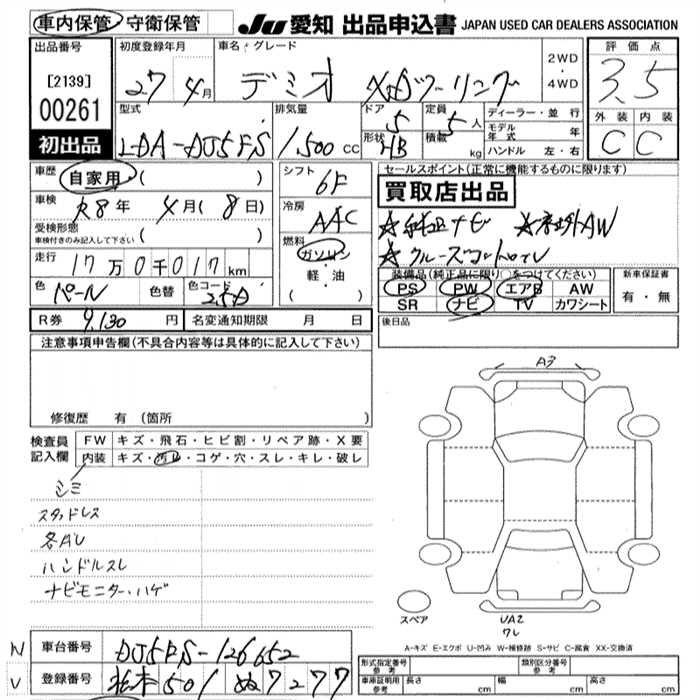 車内保管 守衛保管 JU 愛知 出品申込書 JAPAN USED CAR DEALERS ASSOCIATION
出品番号 初度登録年月 車名・グレード 2WD・4WD 評価点
[2139] 27年4月 デミオ XDツーリング 3.5
00261 型式 排気量 ドア 定員 ディーラー・並行 外装 内装
初出品 LDA-DJ5FS 1,500cc 5 5人 モデル年式 年 C C
形状 HB 積載 kg ハンドル 左・右
車歴 自家用 ( ) シフト 6F セールスポイント(正常に機能するものに限ります)
車検 R8年 4月(8日) 冷房 AAC 買取店出品
受検形態 車検付きのみ記入して下さい ( ) ☆純正ナビ ☆社外AW
走行 17万0千017km 燃料 ガソリン・軽・油 ( ) ☆クルーズコントロール
色 パール 色替 色コード 25D 装備品(純正品に限り○をつけてください) 新車保証書
PS PW エアB AW 有・無
SR ナビ TV カワシート
R券 9,130円 名変通知期限 月 日 後日品
注意事項申告欄(不具合内容等は具体的に記入して下さい)
修復歴 有 (箇所 )
A3
検査員記入欄 FW キズ・飛石・ヒビ割・リペア跡・X要
内装 キズ・汚れ・コゲ・穴・スレ・キレ・破レ
シミ
スタッドレス
各AL
ハンドルスレ
ナビモニター・ハゲ
スペア UA2
ワレ
A-キズ E-エクボ U-凹み W-補修跡 S-サビ C-腐食 XX-交換済
N 車台番号 DJ5FS-126652 型式指定番号 参考 類別区分番号 参考
V 登録番号 松本 501 ぬ 7277 車庫証明用 参考 長さ cm 幅 cm 高さ cm